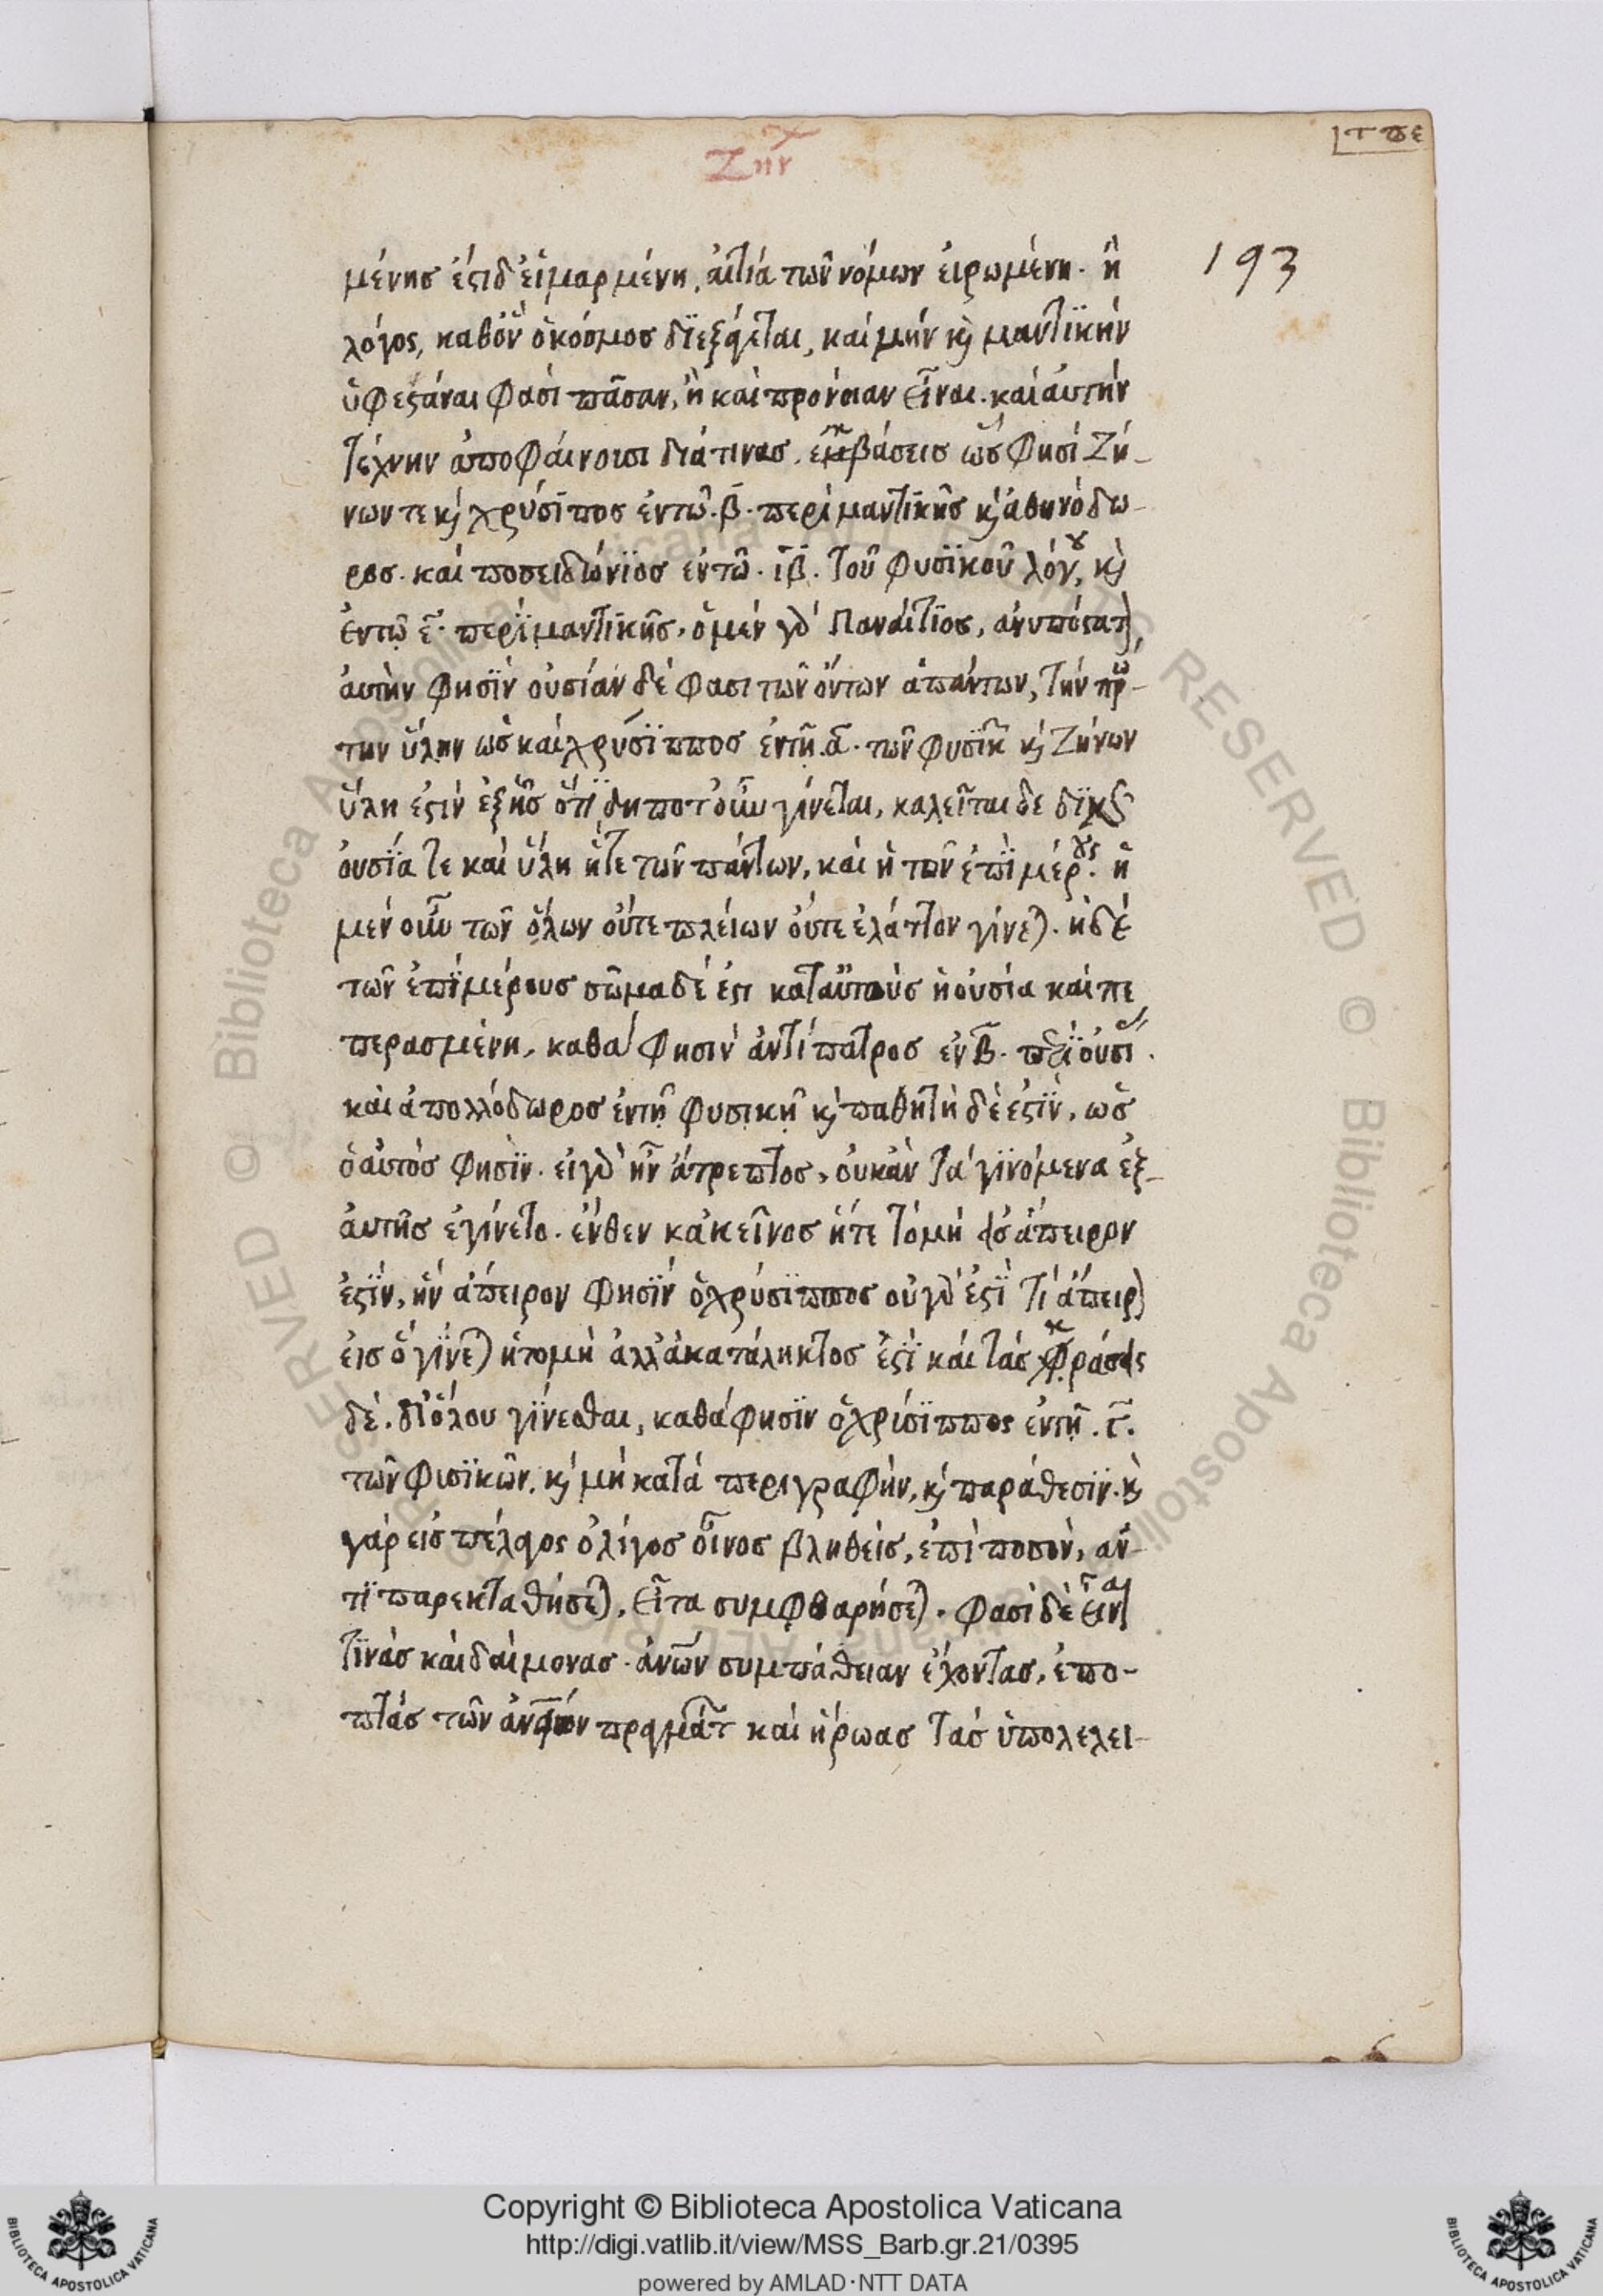 Ζην
τπε
193
μένης ἐςιδ εἱμαρμένη, αἰτία των νόμων εἰρωμένη. ἢ
λόγος, καθὃν ὁκόσμοσ διεξάγεται, καὶ μὴν κ) μαντϊκὴν
ὑφεςάναι φασὶ πᾶσαν, ἢ καὶ πρόνοιαν εἶναι. καὶ αὐτὴν
τέχνην ἀποφαίνουσι διάτινασ. ἐκβάσεισ ὥς φησὶ Ζή-
νων τε κ) χρύσιπος ἐντῶ. β. περὶ μαντικῆσ κ) ἀθηνόδω-
ρος. καὶ ποσειδώνϊοσ ἐντῶ. ιβ. τοῦ φυσϊκοῦ λόγου, κ)
ἐντῷ ε. περὶ μαντικῆσ. ὁμὲν γὰρ Παναίτϊος, ἀνυπόςατ)
αυτὴν φησὶν οὐσίαν δέ φασι τῶν ὄντων ἁπάντων, τὴν πρώ-
την ὕλην ωσ καὶ χρύσϊπποσ ἐντῇ α. τῶν φυσικ κ) Ζήνων
ὕλη ἐςιν ἐξ ἧσ ὅτι δηποτ οὖν γίνεται, καλεῖται δε διχῶς
οὐσϊα τε καὶ ὕλη ἥτε τῶν πάντων, καὶ ἡ των ἐπὶ μέρους. ἡ
μὲν οὖν τῶν ὅλων οὔτε πλείων οὔτε ἐλάττον γίνε). ἡδὲ
τῶν ἐπϊμέρους σῶμα δέ ἐςι καταὐτοὺς ἡ οὐσία καὶ πε
περασμένη, καθά φησιν ἀντίπατρος ἐν β. περὶ οὐσι.
καὶ ἀπολλόδωροσ ἐντῇ φυσικῇ κ) παθητὴ δὲ ἐςϊν, ωσ
ὁ αυτὸσ φησϊν. εἰ γὰρ ἦν ἄτρεπτος, οὐκὰν τὰ γϊνόμενα ἐξ-
αυτῆσ ἐγίνετο. ἔνθεν κἀκεῖνοσ ἥτε τομὴ εἰσ ἄπειρον
ἐςϊν, ἣν ἄπειρον φησϊν ὁχρύσϊππος οὐ γὰρ ἐςϊ τὶ ἄπειρ)
εἰσ ὃ γίνε) ἡτομὴ ἀλλἀκατάληκτος ἐςϊ καὶ τὰς κράσεις
δὲ. διὅλου γίνεσθαι, καθά φησϊν ὁχρίσϊππος ἐντῇ. γ.
τῶν φισϊκῶν, κ) μὴ κατὰ περιγραφὴν, κ) παράθεσϊν. κ)
γάρ εἰσ πέλαγος ὀλίγοσ οἶνοσ βληθεὶσ, ἐπὶ ποσὸν, ἀν-
τϊπαρεκταθήσε), εἶτα συμφθαρήσε). φασὶ δὲ εἶναι
τϊνὰσ καὶ δαίμονασ. ἀνων συμπάθειαν ἔχοντασ, ἐπο-
πτὰσ τῶν ἀνων πραγμάτ καὶ ἥρωασ τὰσ ὑπολελει-
Copyright © Biblioteca Apostolica Vaticana
http://digi.vatlib.it/view/MSS_Barb.gr.21/0395
powered by AMLAD·NTT DATA